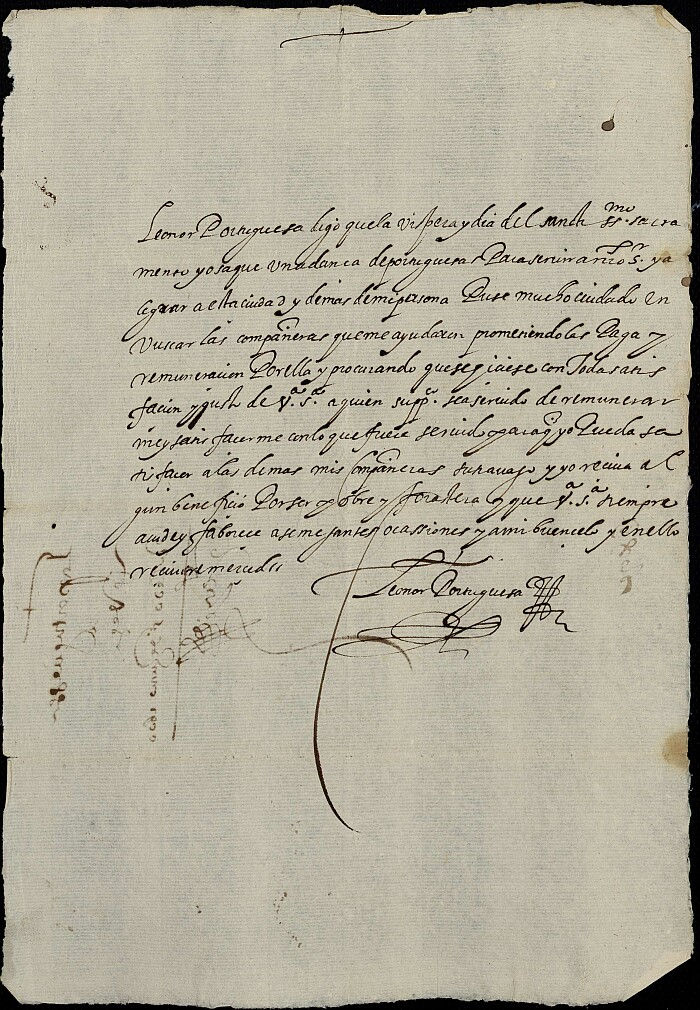 Leonor Portuguesa digo que la vispera y dia del sanctiss.mo sacra
mento yo saque una dança de portuguesas Para servir a nro s.r y a
legrar a esta ciudad y demas de mi persona Puse mucho cuidado en
vuscar las compañeras que me ayudaron prometiendoles Paga y
remuneracion Por ella y procurando que se yciese con Toda satis
facion y gusto de V.a s.a a quien supp.co sea servido de remunerar
me y satisfacerme con lo que fuere servido para q yo Pueda sa
tisfacer a las demas mis compañeras su travajo y yo reciva al
gun beneficio Por ser pobre y forastera y que V.a s.a siempre
acude y faborece a semejantes ocassiones y a mi buen celo y en ello
recivire merced
Leonor Portuguesa